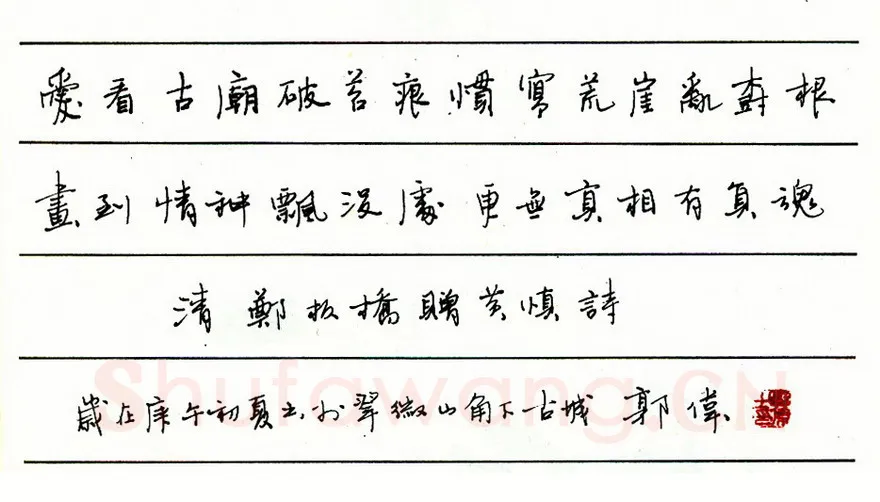 愛看古廟破苔痕慣寫荒崖亂樹根
畫到情神飄沒處更無真相有真魂
清鄭板橋贈黄慎詩
歲在庚午初夏書於翠微山角下古城 郭偉
Shufawang.CN